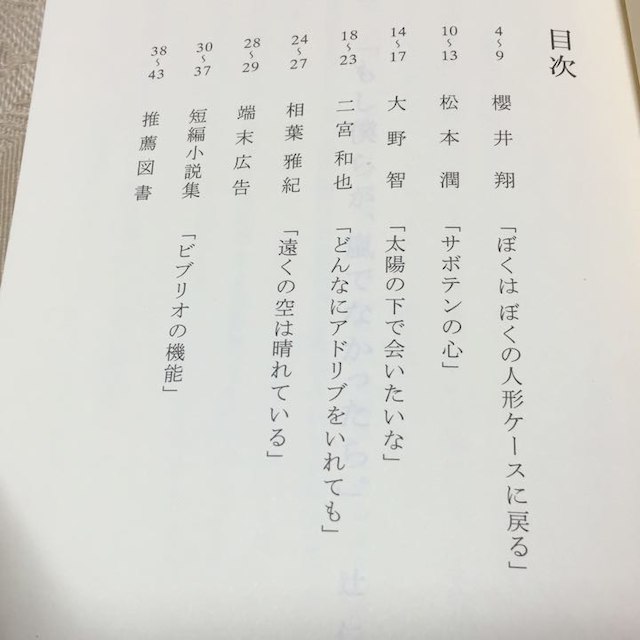 目次
4~9 櫻井翔 「ぼくは ぼくの人形ケースに戻る」
10~13 松本潤 「サボテンの心」
14~17 大野智 「太陽の下で会いたいな」
18~23 二宮和也 「どんなにアドリブをいれても」
24~27 相葉雅紀 「遠くの空は晴れている」
28~29 端末広告
30~37 短編小説集 「ビブリオの機能」
38~43 推薦図書